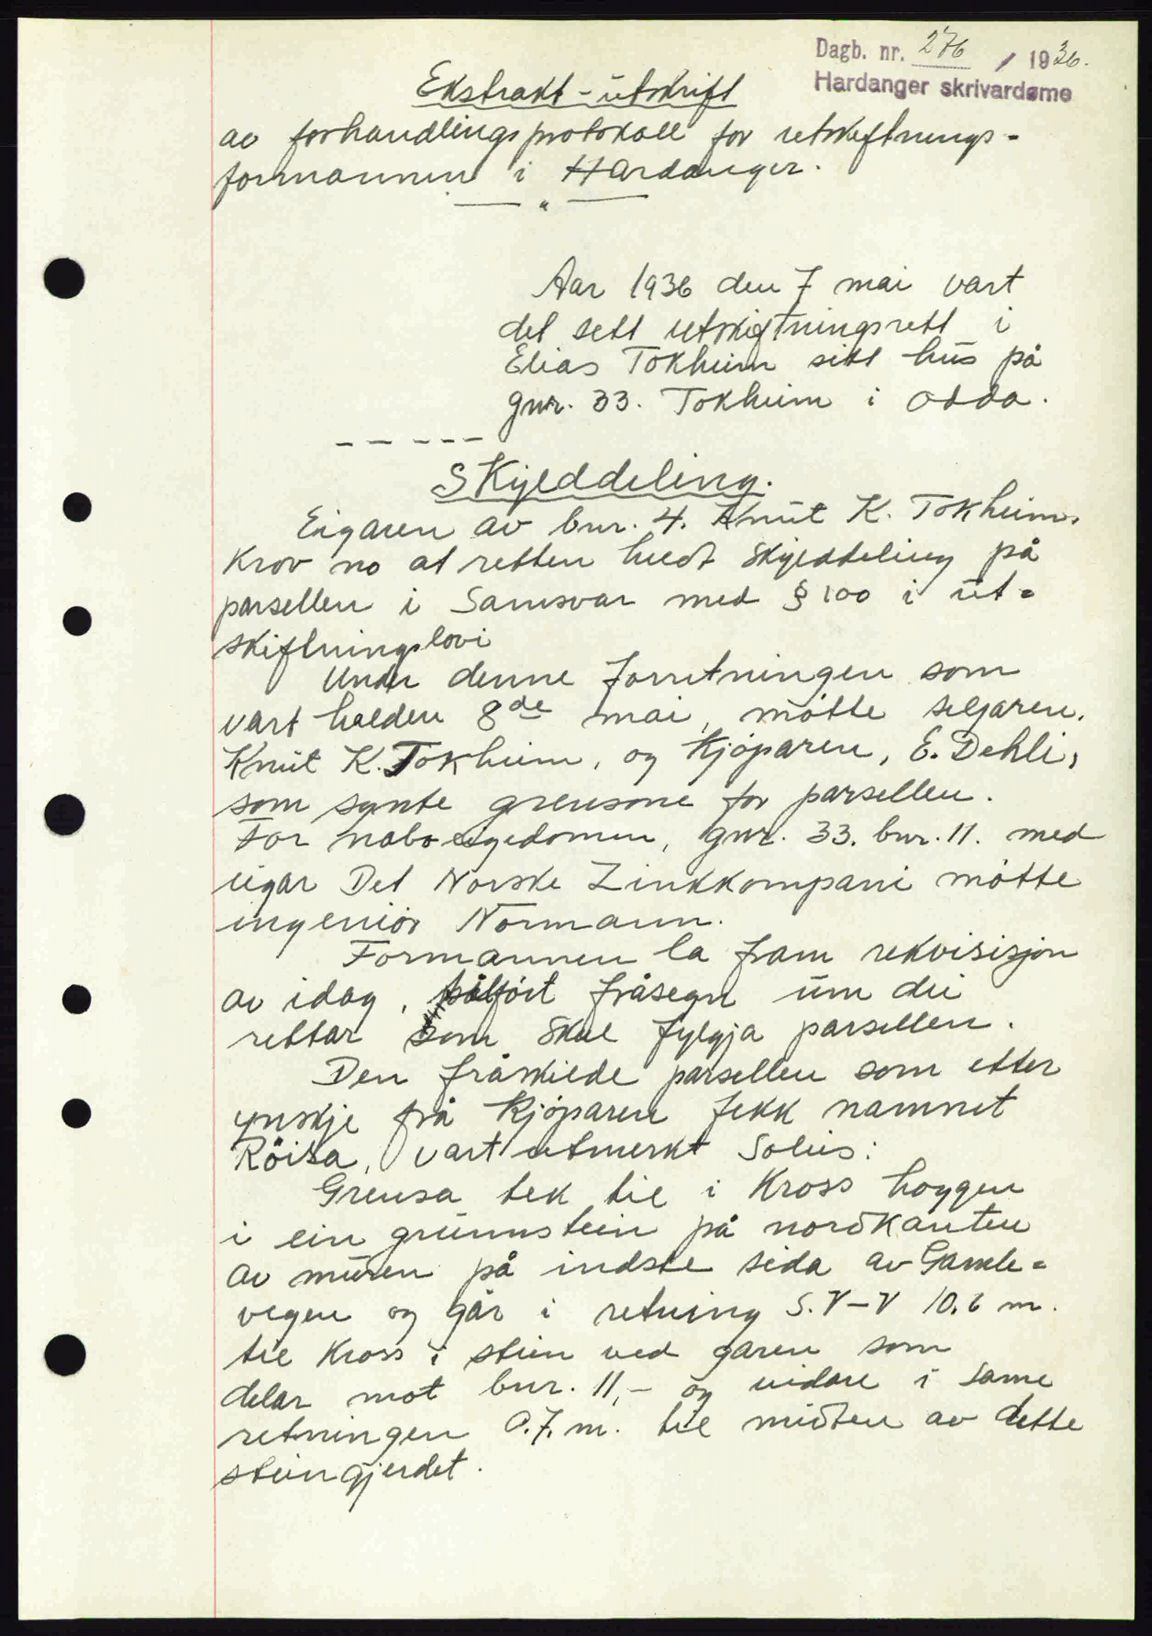 Dagb. nr. 276 / 1936.
Hardanger skrivardøme
Ekstrakt-utskrift
av forhandlingsprotokoll for utskiftnings-
formannen i Hardanger.
— " —
Aar 1936 den 7 mai vart
det sett utskiftningsrett i
Elias Tokheim sitt hus på
gnr. 33. Tokheim i Odda.
- - - - -
Skylddeling.
Eigaren av bnr. 4. Knut K. Tokheim,
krov no at retten heldt skylddeling på
parsellen i Samsvar med § 100 i ut-
skiftningslovi
Under denne forretningen som
vart halden 8de mai, møtte seljaren,
Knut K. Tokheim, og kjøparen, E. Dehli,
som synte grensone for parsellen.
For nabo eigedomen, gnr. 33. bnr. 11. med
eigar Det Norske Zinkkompani møtte
ingeniør Normann.
Formannen la fram rekvisisjon
av idag, påført fråsegn um dei
rettar som skal fylgja parsellen.
Den fråskilde parsellen som etter
ynskje frå kjøparen fekk namnet
Röisa, vart utmerkt soleis:
Grensa tek til i Kross hoggen
i ein grunnstein på nordkanten
av muren på indste sida av Gamle-
vegen og går i retning S.V-V 10.6 m.
til Kross i stein ved garen som
delar mot bnr. 11,- og vidare i same
retningen 0.7. m. til midten av dette
steingjerdet.